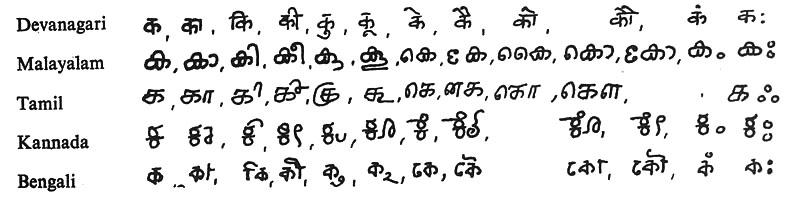 Devanagari क, का, कि, की, कु, कू, के, कै, को, कौ, कं कः
Malayalam ക, കാ, കി, കീ, കു, കൂ, കെ, കേ, കൈ, കൊ, കോ, കം കഃ
Tamil க, கா, கி, கீ, கு, கூ, கெ, கை, கொ, கௌ, . க ஃ
Kannada ಕ ಕಾ, ಕಿ, ಕೀ, ಕು, ಕೂ, ಕೆ, ಕೈ, ಕೊ, ಕೌ, ಕಂ ಕಃ
Bengali ক, কা, কি, কী, কু, কূ, কে, কৈ কো, কৌ, কং কঃ